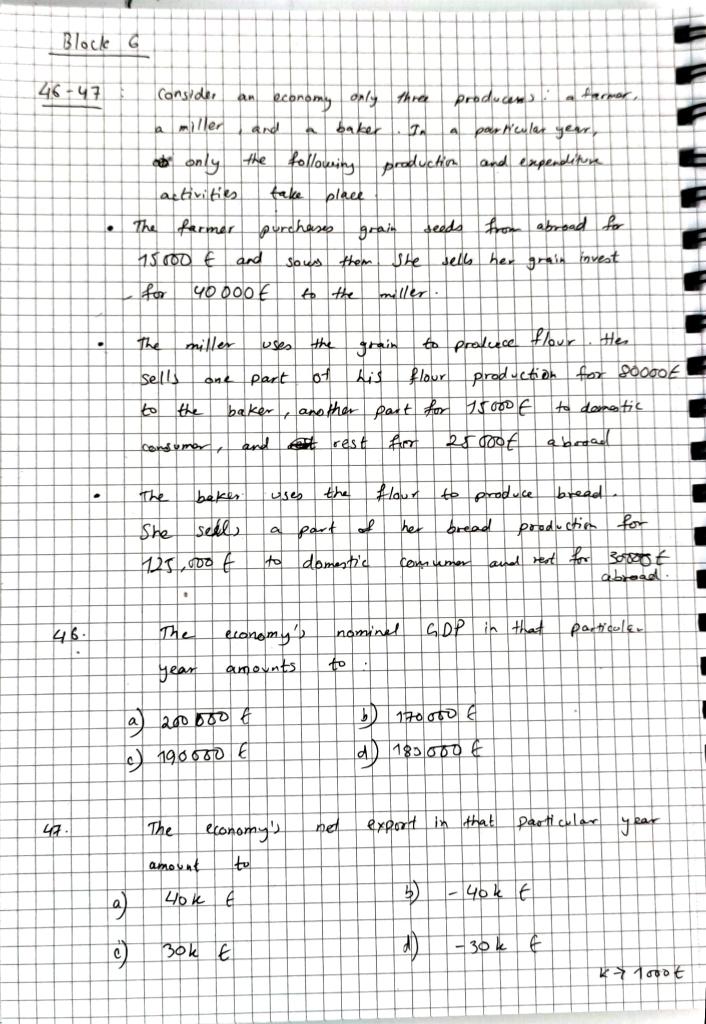 Block 6
46-47 : Consider an economy only three producers : a farmer,
a miller, and a baker. In a particular year,
only the following production and expenditure
activities take place.
• The farmer purchases grain seeds from abroad for
15000 € and sows them. She sells her grain invest
for 40000 € to the miller.
• The miller uses the grain to produce flour. He
sells one part of his flour production for 80000€
to the baker, another part for 15000 € to domestic
consumer, and rest for 25000€ abroad
• The baker uses the flour to produce bread.
She sells a part of her bread production for
125,000 € to domestic consumer and rest for 30000 €
abroad.
46. The economy's nominal GDP in that particular
year amounts to :
a) 200 000 € b) 170000 €
c) 190000 € d) 180000 €
47. The economy's net export in that particular year
amount to
a) 40k € b) - 40k €
c) 30k € d) - 30k €
k → 1000€